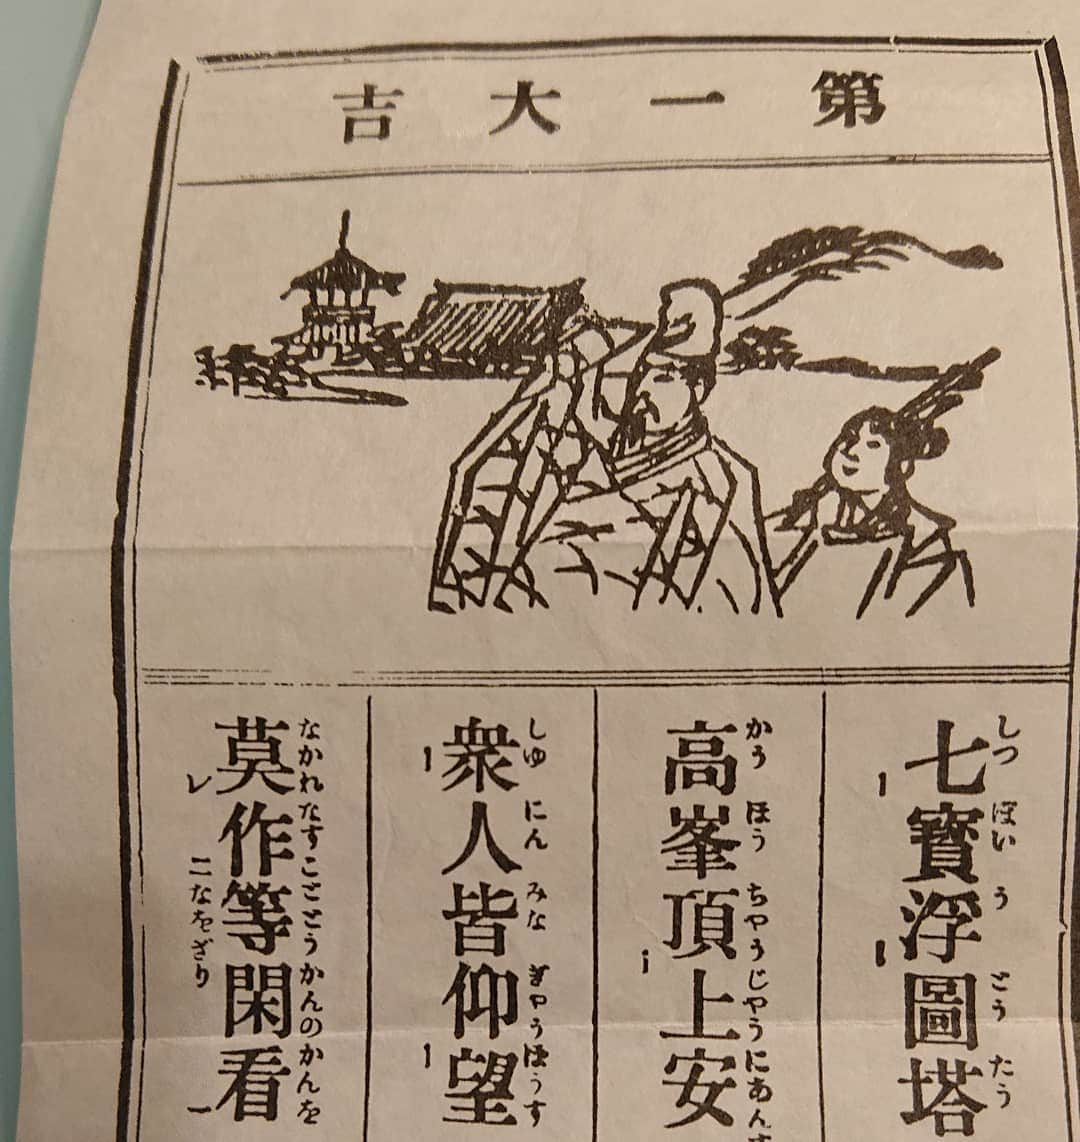 第一大吉
七寶浮圖塔
しつぽいうどうたう
高峯頂上安
かうほうちやうじやうにあんす
衆人皆仰望
しゆにんみなぎやうばうす
莫作等閑看
なかれなすことどうかんのかんを
レ二なをざり一